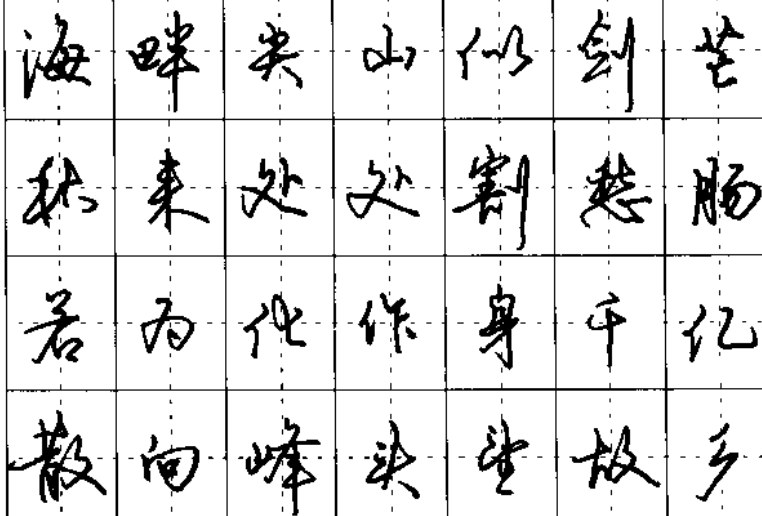 海畔尖山似剑芒
秋来处处割愁肠
若为化作身千亿
散向峰头望故乡